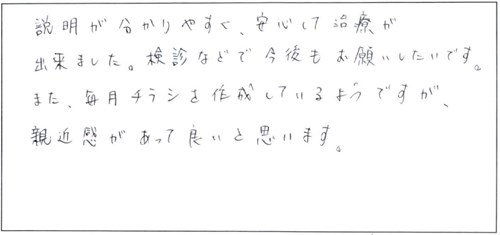 説明が分かりやすく、安心して治療が
出来ました。検診などで今後もお願いしたいです。
また、毎月チラシを作成しているようですが、
親近感があって良いと思います。